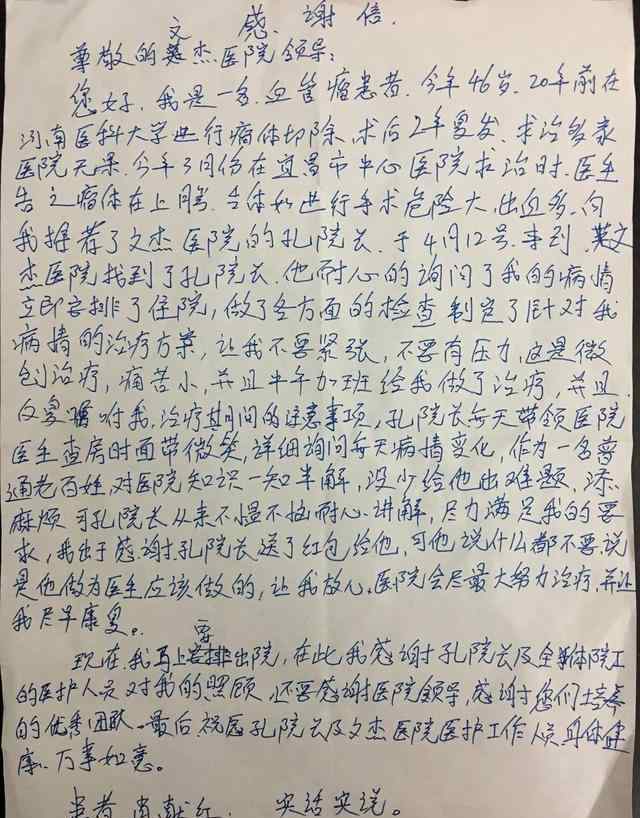 感谢信.
尊敬的文杰医院领导:
您好.我是一名.血管瘤患者.今年46岁.20年前在
河南医科大学进行瘤体切除.术后2年复发.求治多家
医院无果.今年3月份在宜昌市中心医院求治时.医生
告之瘤体在上腭.舌体如进行手术危险大.出血多.向
我推荐了文杰医院的孔院长.于4月12号.来到.文
杰医院找到了孔院长.他耐心的询问了我的病情
立即安排了住院,做了各方面的检查制定了针对我
病情的治疗方案,让我不要紧张,不要有压力.这是微
创治疗,痛苦小,并且中午加班给我做了治疗,并且
反复嘱咐我.治疗其间的注意事项,孔院长每天带领医院
医生查房时面带微笑,详细询问每天病情变化,作为一名普
通老百姓,对医院知识一知半解,没少给他出难题.添
麻烦可孔院长从来不愠不恼耐心.讲解,尽力满足我的要
求,我出于感谢孔院长送了红包给他,可他说什么都不要.说
是他做为医生应该做的,让我放心.医院会尽最大努力治疗,并让
我尽早康复.
现在.我马上要安排出院,在此我感谢孔院长及全体院工
的医护人员对我的照顾,还要感谢医院领导,感谢您们培养
的优秀团队.最后祝愿孔院长及文杰医院医护工作人员身体健
康、万事如意。
患者 肖献红. 实话实说。